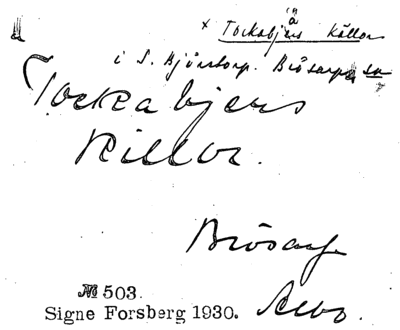 × Tockabjers Källor
i S. Björstorp. Brösarps sn
Tockabjers
Killor.
Brösarp
Albo.
№ 503.
Signe Forsberg 1930.